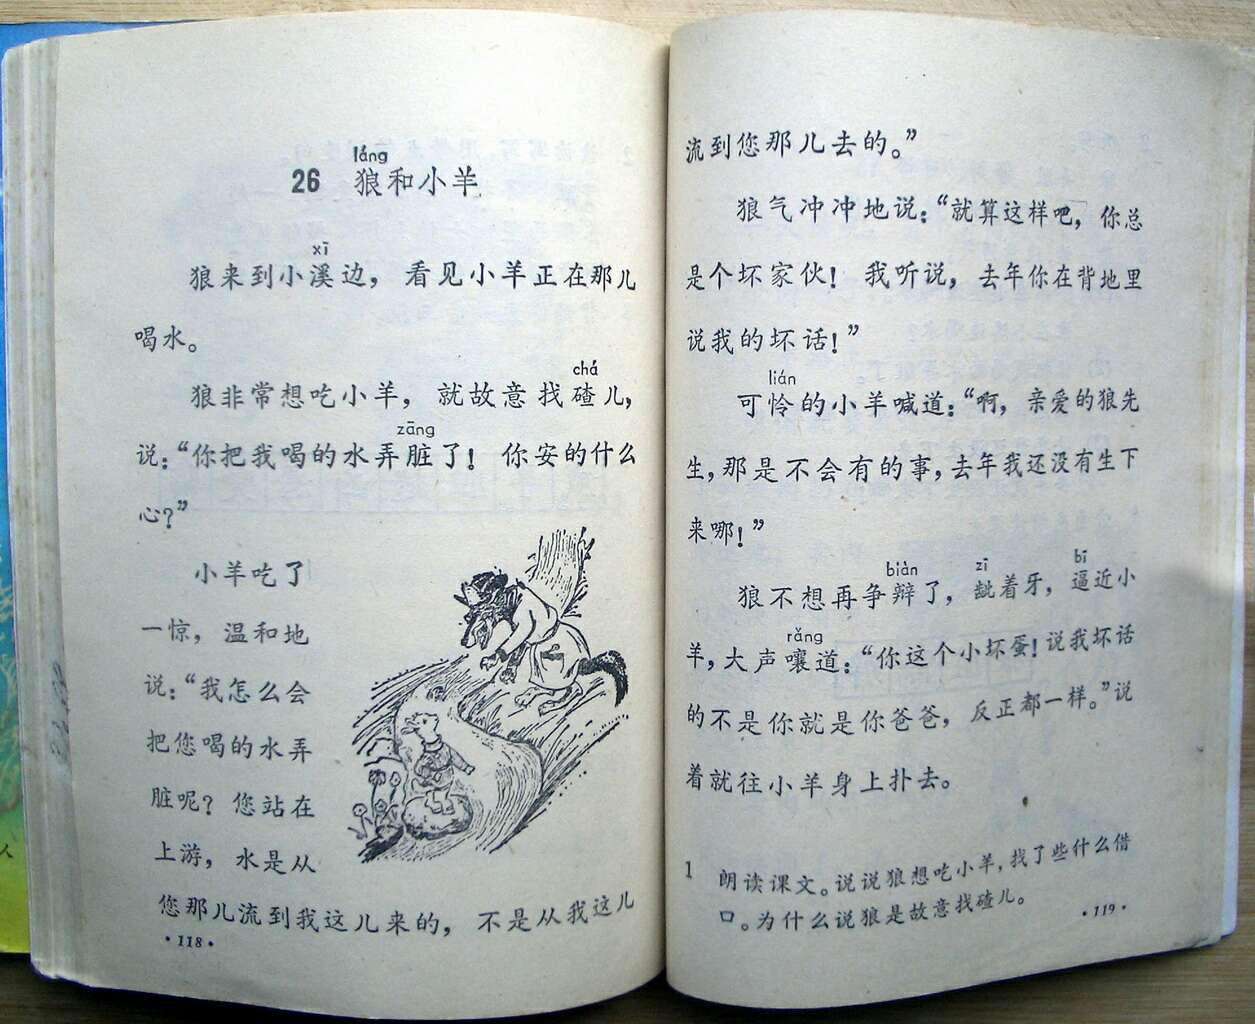 láng
26 狼和小羊
xī
狼来到小溪边，看见小羊正在那儿
喝水。
chá
狼非常想吃小羊，就故意找碴儿，
zāng
说：“你把我喝的水弄脏了！你安的什么
心？”
小羊吃了
一惊，温和地
说：“我怎么会
把您喝的水弄
脏呢？您站在
上游，水是从
您那儿流到我这儿来的，不是从我这儿
·118·
流到您那儿去的。”
狼气冲冲地说：“就算这样吧，你总
是个坏家伙！我听说，去年你在背地里
说我的坏话！”
lián
可怜的小羊喊道：“啊，亲爱的狼先
生，那是不会有的事，去年我还没有生下
来哪！”
biàn zī bī
狼不想再争辩了，龇着牙，逼近小
rǎng
羊，大声嚷道：“你这个小坏蛋！说我坏话
的不是你就是你爸爸，反正都一样。”说
着就往小羊身上扑去。
1 朗读课文。说说狼想吃小羊，找了些什么借
口。为什么说狼是故意找碴儿。
·119·
人